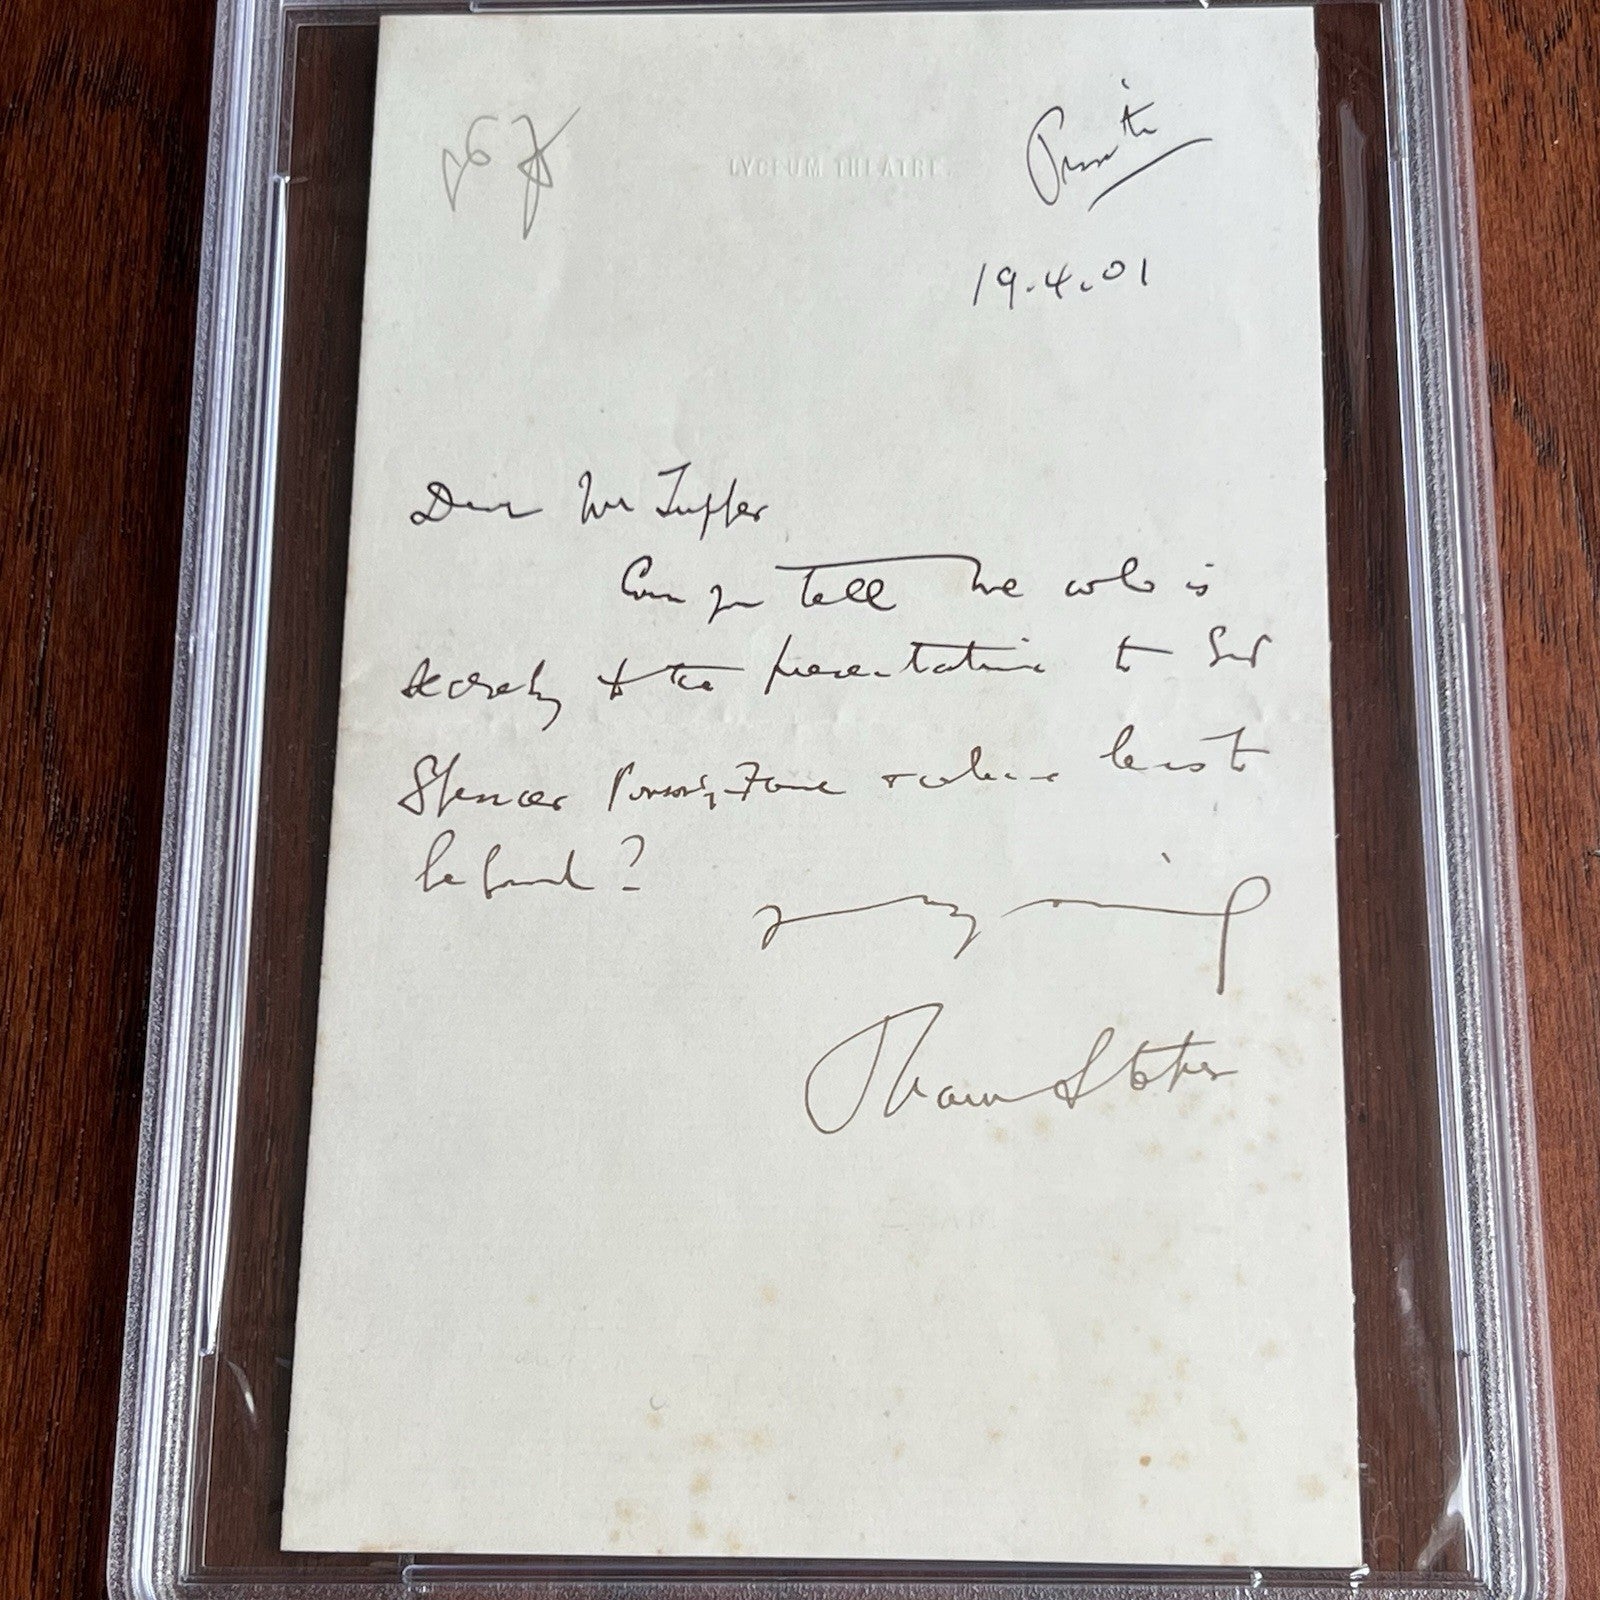 LYCEUM THEATRE.
Private
19.4.01
Dear Mr Tupper
Can you tell me who is
secretary to the presentation to Sir
Spencer Ponsonby-Fane & where he is to
be found?
Bram Stoker